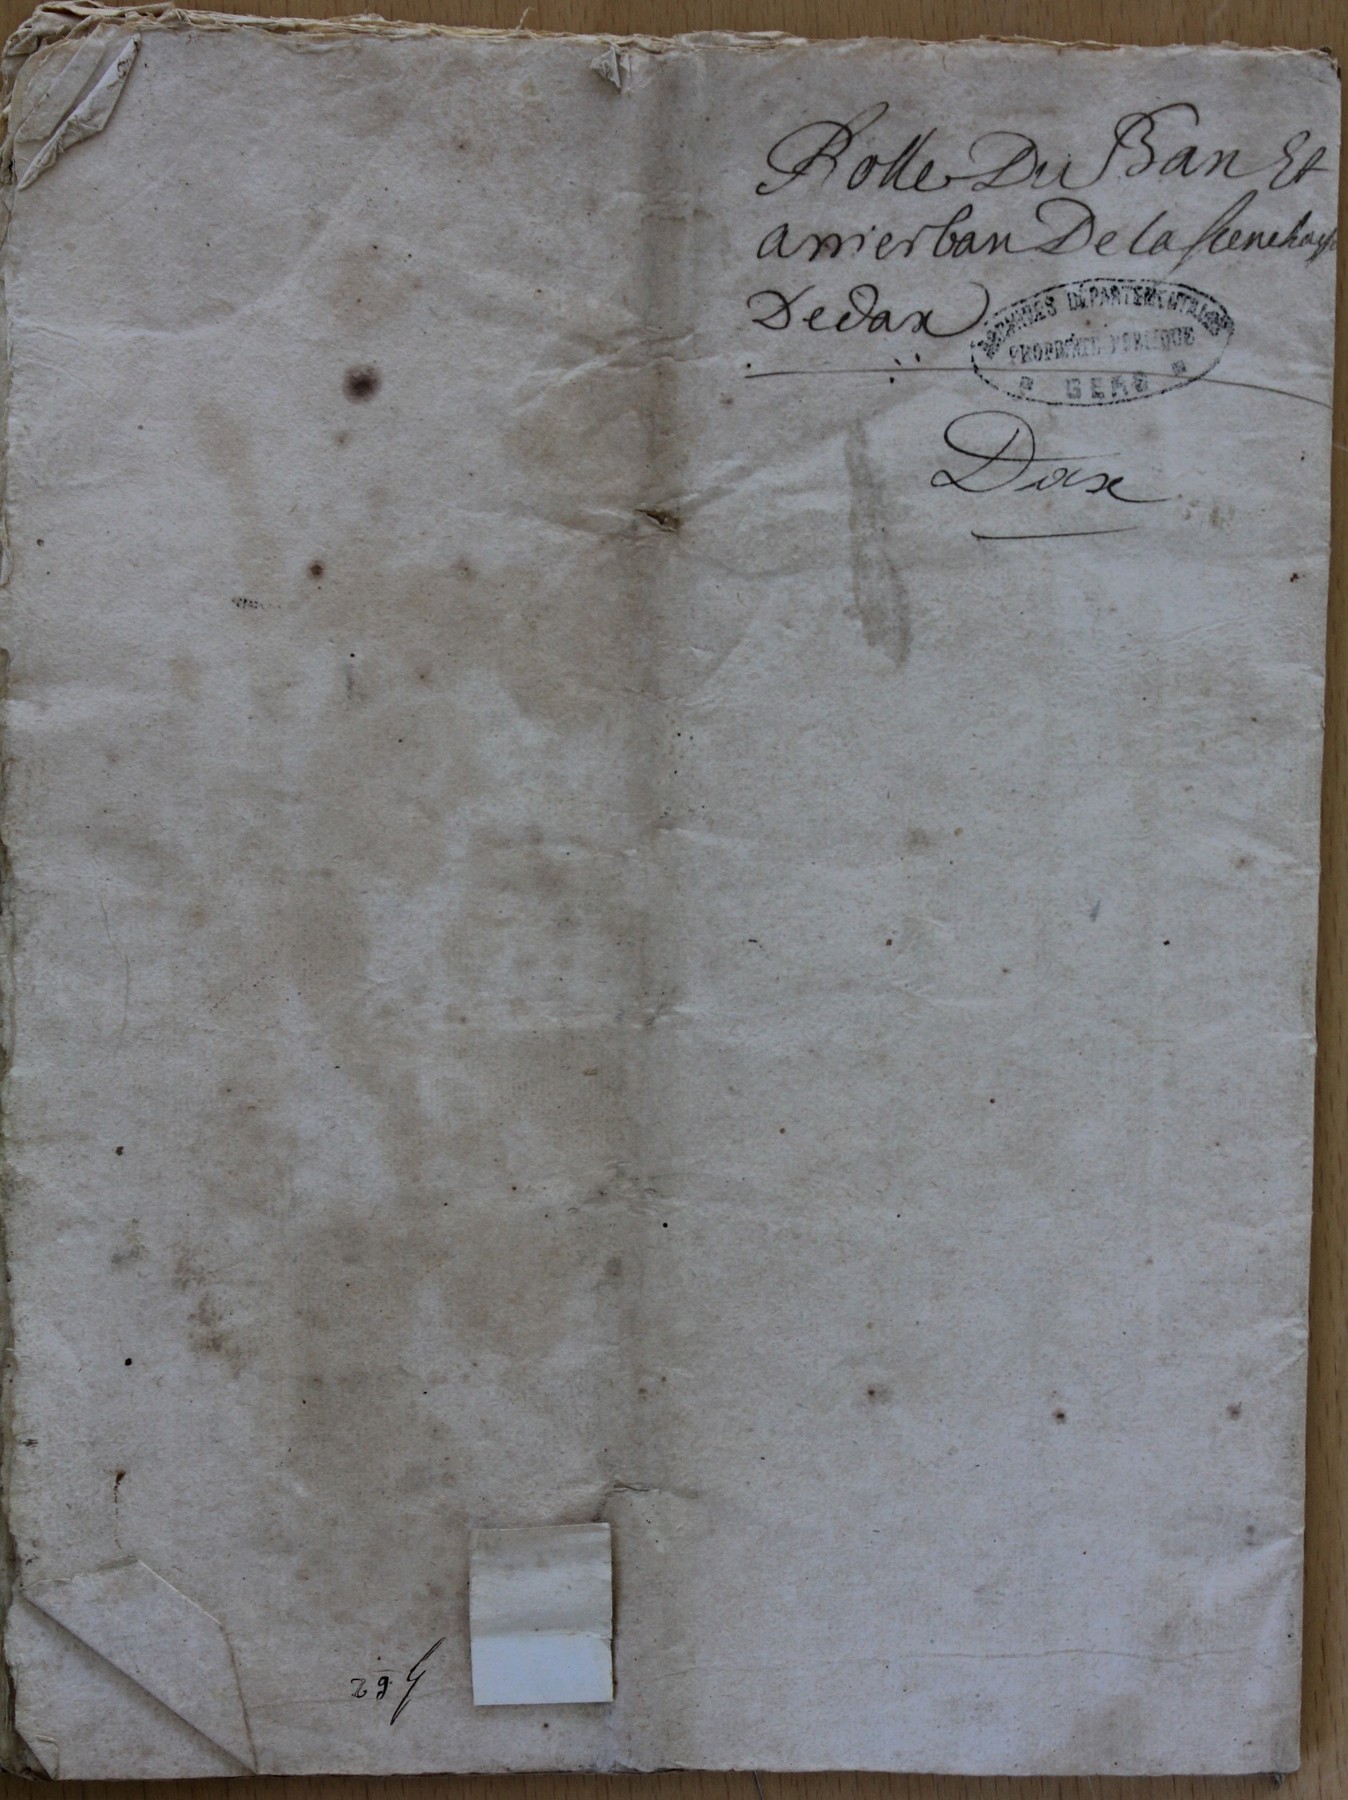 Rolle Du Ban Et
arrierban De la
Dedax
ARCHIVES DÉPARTEMENTALES
PROPRIÉTÉ PUBLIQUE
GERS
Dax